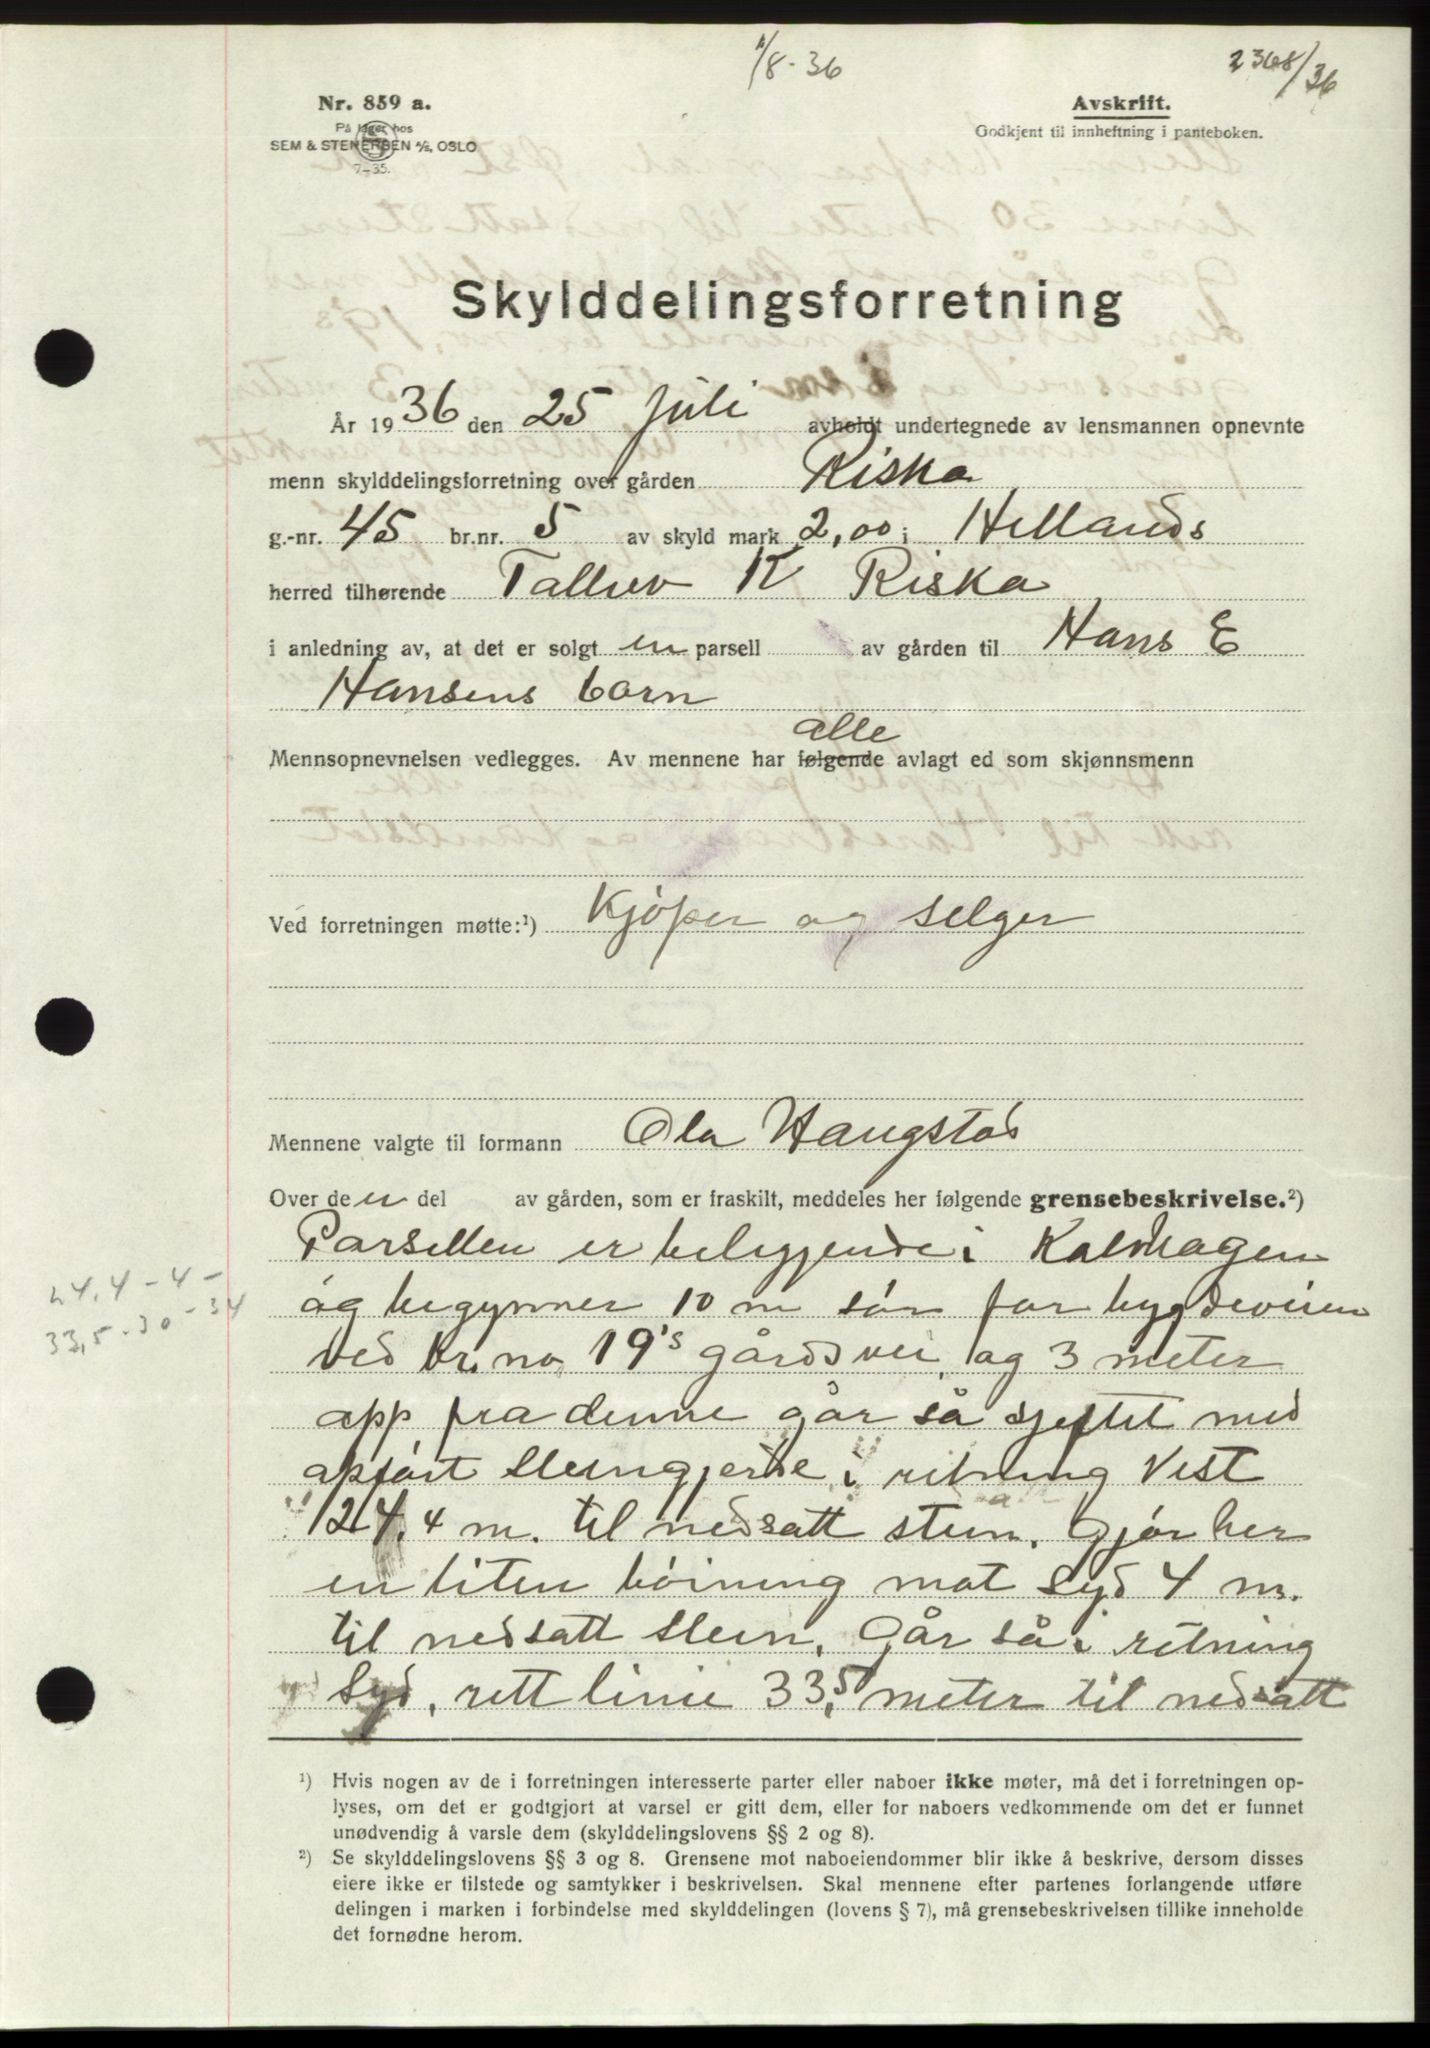 1/8-36
2368/36
Nr. 859 a.
På lager hos
SEM & STENERSEN A/S, OSLO
7-35.
Avskrift.
Godkjent til innheftning i panteboken.
Skylddelingsforretning
År 1936 den 25 juli avholdt undertegnede av lensmannen opnevnte
menn skylddelingsforretning over gården Riska
g.-nr. 45 br.nr. 5 av skyld mark 2,00 i Hetlands
herred tilhørende Tallev K Riska
i anledning av, at det er solgt en parsell av gården til Hans E
Hansens barn
alle
Mennsopnevnelsen vedlegges. Av mennene har følgende avlagt ed som skjønnsmenn
Ved forretningen møtte:¹) Kjøper og selger
Mennene valgte til formann Ola Haugstad
Over de en del av gården, som er fraskilt, meddeles her følgende grensebeskrivelse.²)
Parsellen er beliggende i Kalvhagen
24.4-4-
og begynner 10 m sør for bygdeveien
33,5-30-34
ved br. no. 19's gårdsvei, og 3 meter
opp fra denne går så skjeftet med
opført steingjerde i retning Vest
24,4 m. til nedsatt stein. Gjør her
en liten bøining mot Syd 4 m.
til nedsatt stein. Går så i retning
Syd, rett linie 33,5 meter til nedsatt
¹) Hvis nogen av de i forretningen interesserte parter eller naboer ikke møter, må det i forretningen op-
lyses, om det er godtgjort at varsel er gitt dem, eller for naboers vedkommende om det er funnet
unødvendig å varsle dem (skylddelingslovens §§ 2 og 8).
²) Se skylddelingslovens §§ 3 og 8. Grensene mot naboeiendommer blir ikke å beskrive, dersom disses
eiere ikke er tilstede og samtykker i beskrivelsen. Skal mennene efter partenes forlangende utføre
delingen i marken i forbindelse med skylddelingen (lovens § 7), må grensebeskrivelsen tillike inneholde
det fornødne herom.